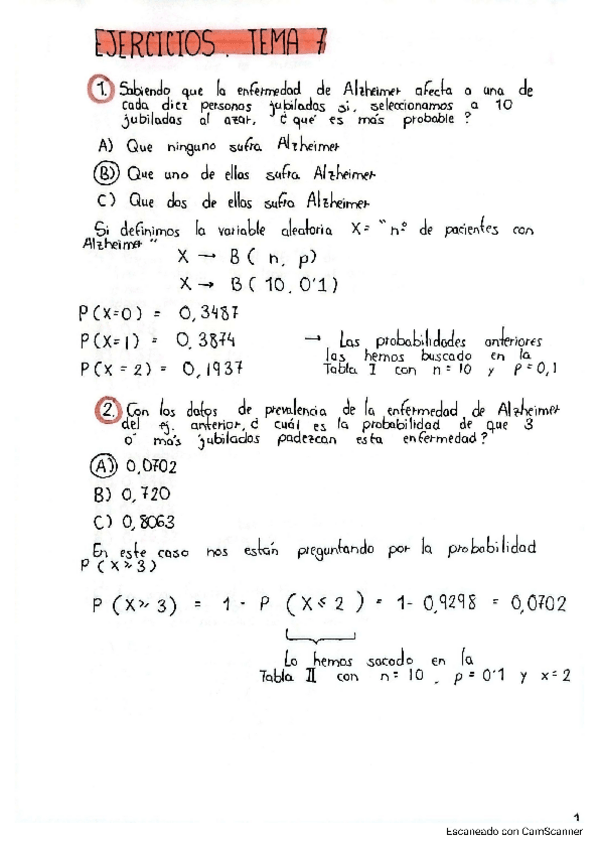 EJERCICIOS. TEMA 7
1. Sabiendo que la enfermedad de Alzheimer afecta a una de
cada diez personas jubilados si, seleccionamos a 10
jubilados al azar, ¿ qué es más probable ?
A) Que ninguno sufra Alzheimer
B) Que uno de ellos sufra Alzheimer
C) Que dos de ellos sufra Alzheimer
Si definimos la variable aleatoria X= " nº de pacientes con
Alzheimer "
X → B ( n, p)
X → B ( 10, 0'1)
P(X=0) = 0,3487
P(X=1) = 0,3874 → Las probabilidades anteriores
las hemos buscado en la
P(X = 2) = 0,1937 Tabla I con n = 10 y p = 0,1
2. Con los datos de prevalencia de la enfermedad de Alzheimer
del ej. anterior, ¿ cuál es la probabilidad de que 3
ó más jubilados padezcan esta enfermedad ?
A) 0,0702
B) 0,720
C) 0,8063
En este caso nos están preguntando por la probabilidad
P ( X ≥ 3)
P ( X ≥ 3) = 1 - P ( X ≤ 2 ) = 1- 0,9298 = 0,0702
Lo hemos sacado en la
Tabla II con n = 10 , p = 0'1 y x = 2
1
Escaneado con CamScanner